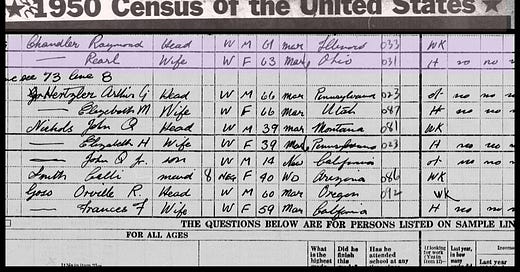 1950 Census of the United States
Chandler Raymond Head W M 61 mar Illinois 033 WK
— Pearl Wife W F 63 mar Ohio 031 H no no
see 73 line 8
Hertzler Arthur G Head W M 66 mar Pennsylvania 023 ot no no
— Elizabeth M Wife W F 66 mar Utah 087 H no no
Nichols John Q Head W M 39 mar Montana 081 WK
— Elizabeth H Wife W F 39 mar Pennsylvania 023 H no no
— John Q Jr. son W M 14 nev California ot no no
maid 8 Neg F 40 Wd Arizona 086 WK
Goss Orville R. Head W M 60 mar Oregon 092 WK
— Frances F Wife W F 59 mar California H no no
THE QUESTIONS BELOW ARE FOR PERSONS LISTED ON SAMPLE LIN
FOR ALL AGES
What is the highest
Did he finish this
Has he attended school at any
looking for work
Last year, in how many
Last year, how